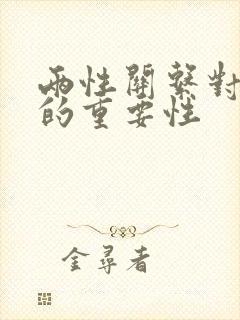 兩性關繫對
的重要性
金尋者